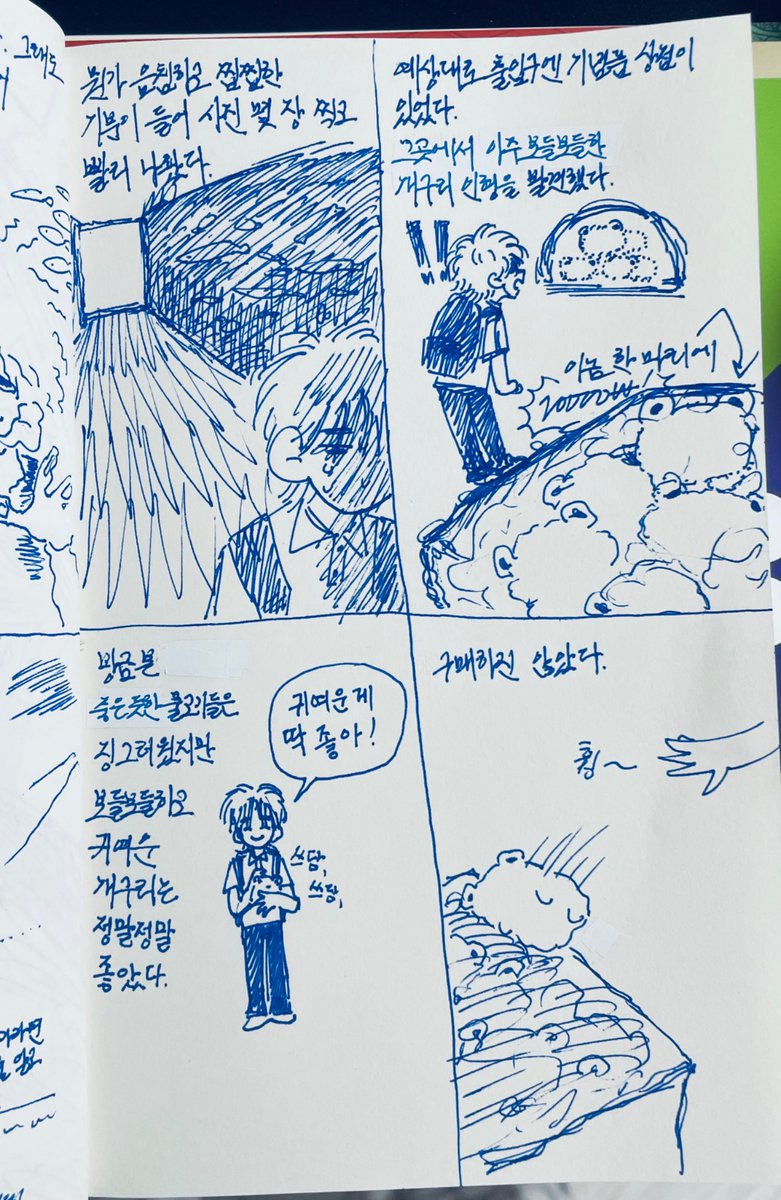 뭔가 음침하고 찝찝한
기분이 들어 사진 몇 장 찍고
빨리 나왔다.
예상대로 출입구엔 기념품 상점이
있었다.
그곳에서 아주 보들보들한
개구리 인형을 발견했다.
!!
이놈 한 마리에
20000₩
방금 본
죽은듯한 물고기들은
징그러웠지만
보들보들하고
귀여운
개구리는
정말정말
좋았다.
귀여운게
딱 좋아!
쓰담,
쓰담,
구매하진 않았다.
휭~
그래도